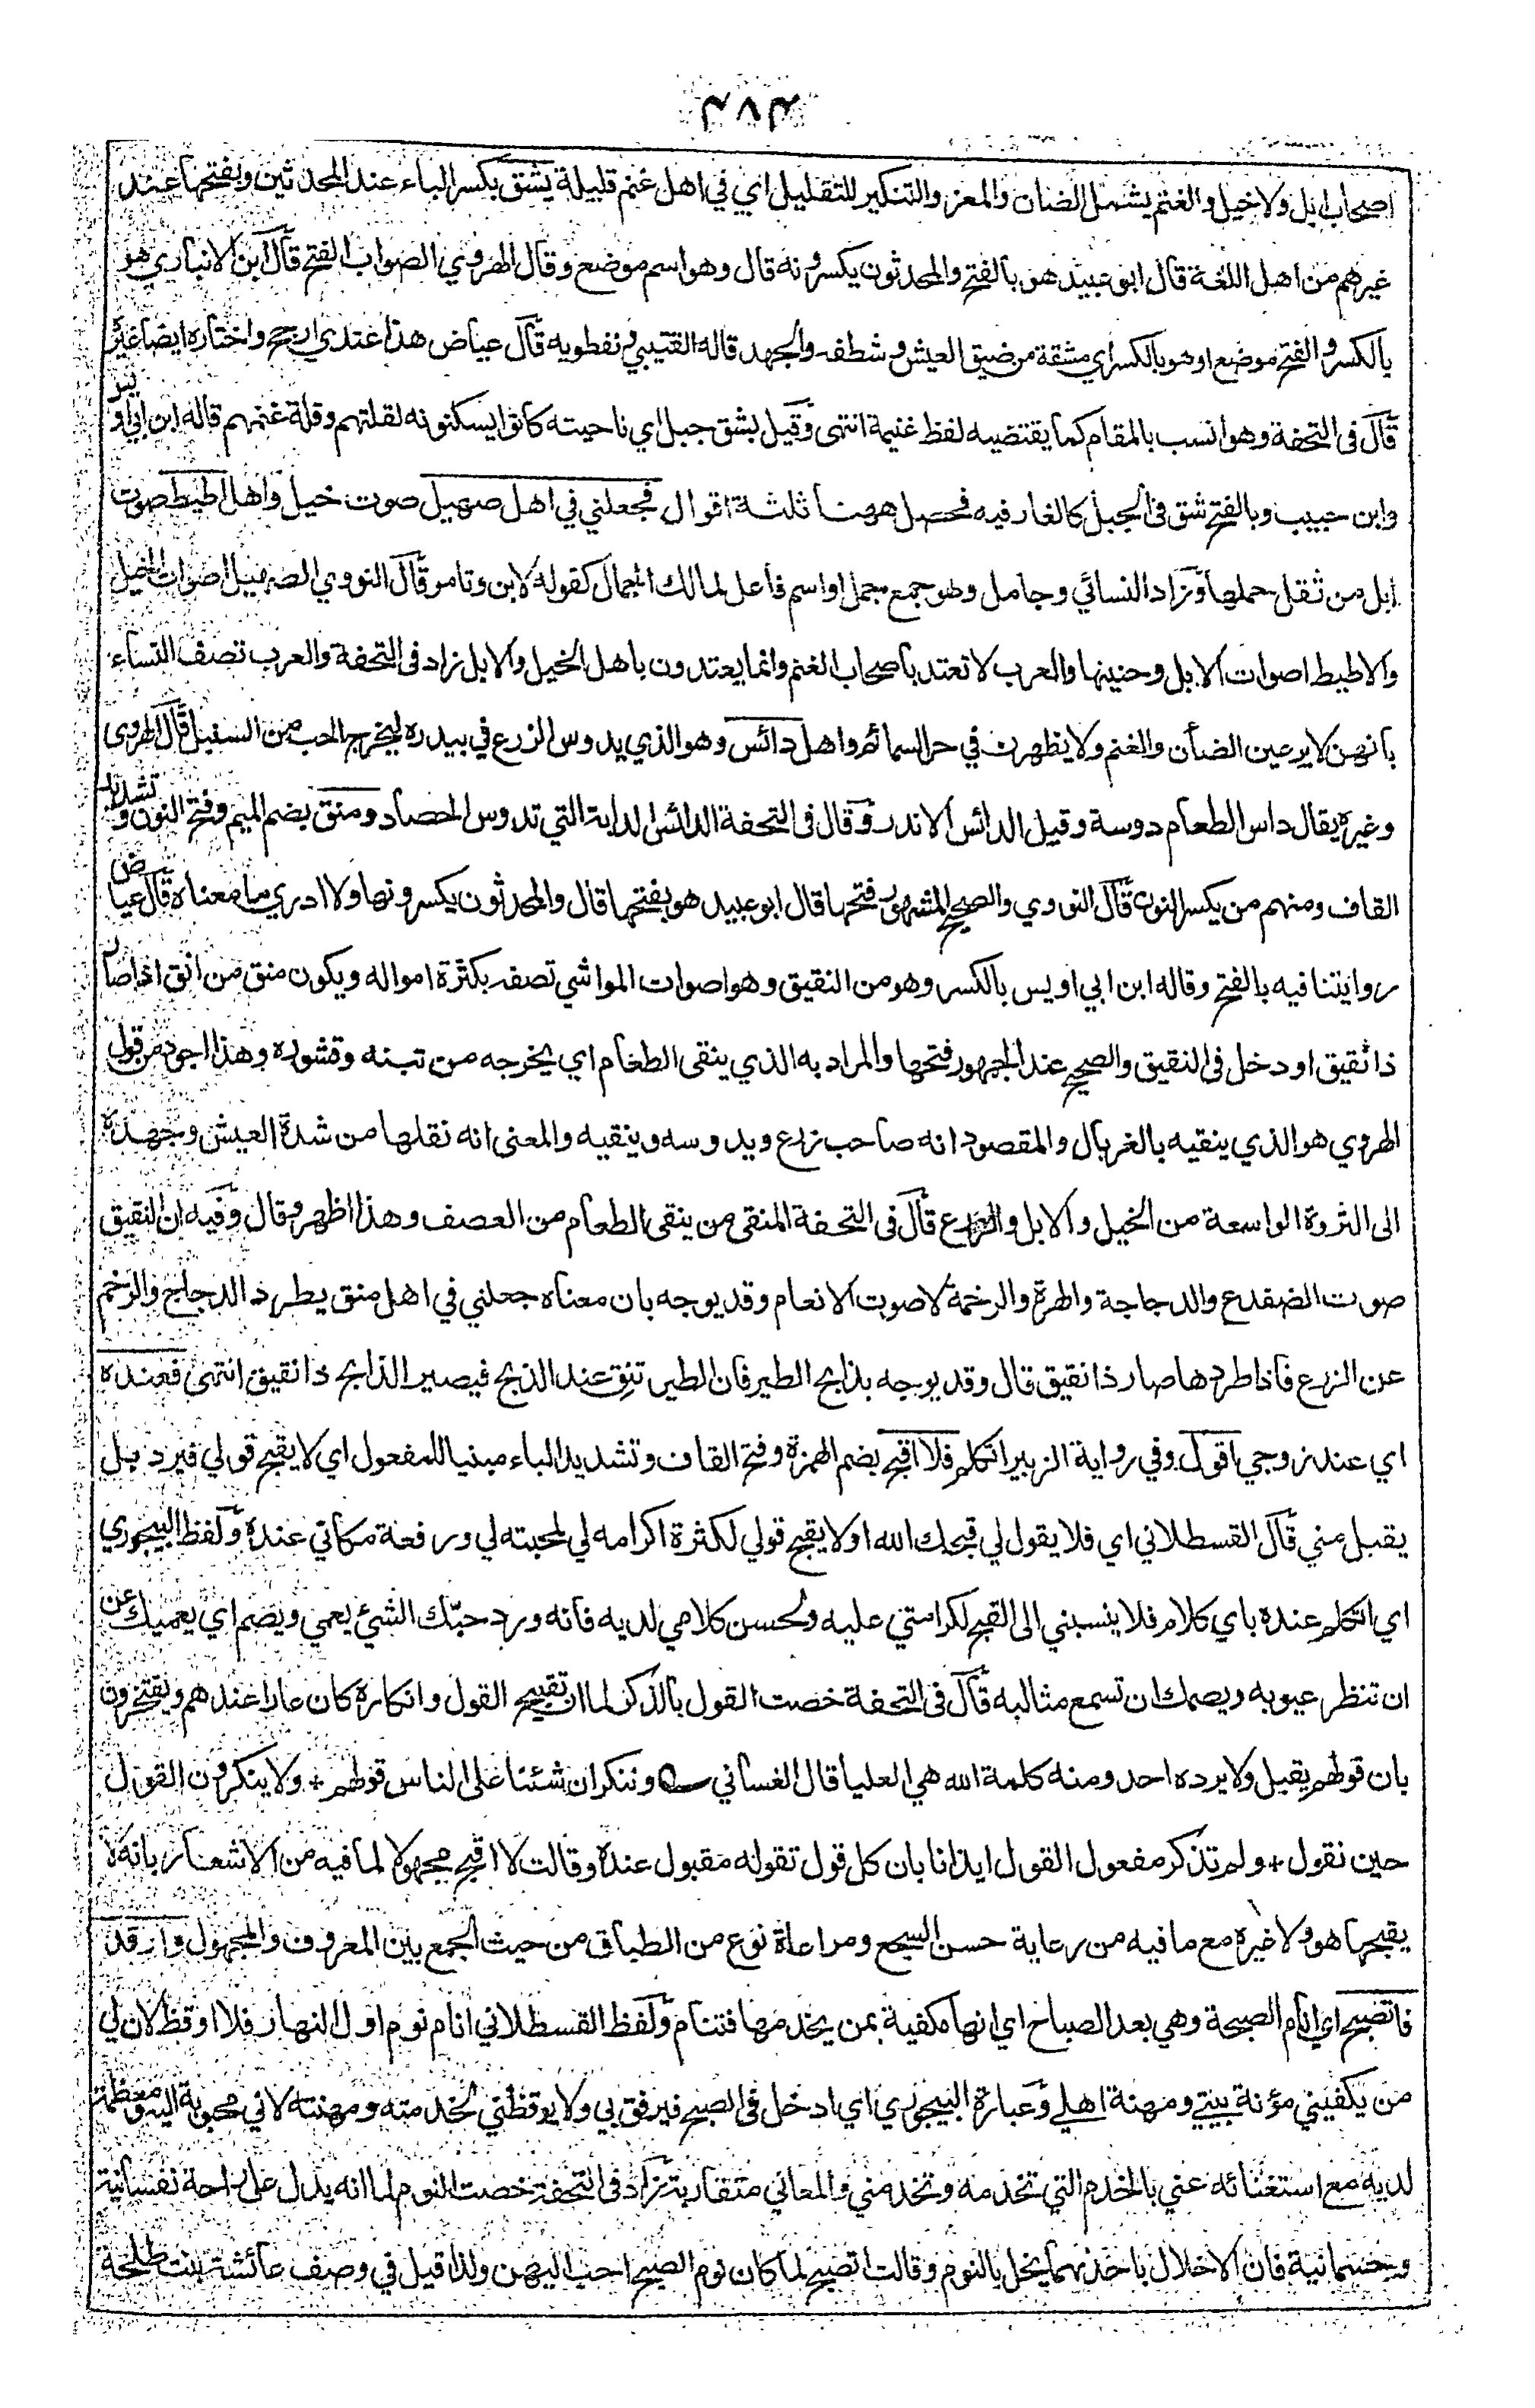 ٤٧٤
اصحاب ابل ولا خيل والغنم يشمل الضان والمعز والتنكير للتقليل اي في اهل غنم قليلة بشق بكسر الباء عند المحدثين وبفتحها عند
غيرهم من اهل اللغة قال ابو عبيد هو بالفتح والمحدثون يكسرونه قال وهو اسم موضع وقال الهروي الصواب الفتح قال ابن الانباري هو
بالكسر والفتح موضع او هو بالكسر اي مشقة من ضيق العيش وشطف والجهد قاله القتيبي ونفطويه قال عياض هذا عندي ارجح واختاره ايضا غيره
قال في التحفة وهو انسب بالمقام كما يقتضيه لفظ غنيمة انتهى وقيل بشق جبل اي ناحيته كانوا يسكنونه لقلتهم وقلة غنمهم قاله ابن ابي اويس
وابن حبيب وبالفتح شق في الجبل كالغار فيه فحصل ههنا ثلثة اقوال فجعلني في اهل صهيل صوت خيل واهل اطيط صوت
ابل من ثقل حملها وزاد النسائي وجامل وهو جمع جمل او اسم فاعل لمالك الجمال كقوله لابن وتامر قال النووي الصهيل اصوات الخيل
والاطيط اصوات الابل وحنينها والعرب لا تعتد باصحاب الغنم وانما يعتدون باهل الخيل والابل زاد في التحفة والعرب تصف النساء
بانهن لا يرعين الضأن والغنم ولا يظهرن في حر السمائم واهل دائس وهو الذي يدوس الزرع في بيدره ليخرج الحب من السنبل قال الهروي
وغيره يقال داس الطعام دوسة وقيل الدائس الاندر وقال في التحفة الدائس الدابة التي تدوس الحصاد ومنق بضم الميم وفتح النون وتشديد
القاف ومنهم من يكسر النون قال النووي والصحيح المشهور فتحها قال ابو عبيد هو بفتحها قال والمحدثون يكسرونها ولا ادري ما معناه قال عياض
روايتنا فيه بالفتح وقاله ابن ابي اويس بالكسر وهو من النقيق وهو اصوات المواشي تصفه بكثرة امواله ويكون منق من انق اذا صار
ذا نقيق او دخل في النقيق والصحيح عند الجمهور فتحها والمراد به الذي ينقي الطعام اي يخرجه من تبنه وقشوره وهذا اجود من قول
الهروي هو الذي ينقيه بالغربال والمقصود انه صاحب زرع ويدوسه وينقيه والمعنى انه نقلها من شدة العيش وجهده
الى الثروة الواسعة من الخيل والابل والزرع قال في التحفة المنقي من ينقي الطعام من العصف وهذا اظهر وقال وفيه ان النقيق
صوت الضفدع والدجاجة والهرة والرخمة لا صوت الانعام وقد يوجه بان معناه جعلني في اهل منق يطرد الدجاج والرخم
عن الزرع فاذا طردها صار ذا نقيق قال وقد يوجه بذابح الطير فان الطير تنق عند الذبح فيصير الذابح ذا نقيق انتهى فعنده
اي عند زوجي اقول وفي رواية الزبير اتكلم فلا اقبح بضم الهمزة وفتح القاف وتشديد الباء مبنيا للمفعول اي لا يقبح قولي فيرد بل
يقبل مني قال القسطلاني اي فلا يقول لي قبحك الله او لا يقبح قولي لكثرة اكرامه لي لمحبته لي ورفعة مكاني عنده ولفظ البيجوري
اي اتكلم عنده باي كلام فلا ينسبني الى القبح لكرامتي عليه ولحسن كلامي لديه فانه ورد حبّك الشيئ يعمي ويصم اي يعميك عن
ان تنظر عيوبه ويصمك ان تسمع مثالبه قال في التحفة خصت القول بالذكر لما ان تقبيح القول وانكاره كان عارا عندهم ويفتخرون
بان قولهم يقبل ولا يرده احد ومنه كلمة الله هي العليا قال الغساني وننكر ان شئنا على الناس قولهم + ولا ينكرون القول
حين نقول + ولم تذكر مفعول القول ايذانا بان كل قول تقوله مقبول عنده وقالت لا اقبح مجهولا لما فيه من الاشعار بانه لا
يقبحها هو ولا غيره مع ما فيه من رعاية حسن السجع ومراعاة نوع من الطباق من حيث الجمع بين المعروف والمجهول وارقد
فاتصبح اي انام الصبحة وهي بعد الصباح اي انها مكفية بمن يخدمها فتنام ولفظ القسطلاني انام نوم اول النهار فلا اوقظ لان لي
من يكفيني مؤنة بيتي ومهنة اهلي وعبارة البيجوري اي ادخل في الصبح فيرفق بي ولا يوقظني لخدمته ومهنته لاني محبوبة اليه ومعظمة
لديه مع استغنائه عني بالخدم التي تخدمه وتخدمني والمعاني متقاربة زاد في التحفة خصت النوم لما انه يدل على راحة نفسانية
وجسمانية فان الاخلال باحدهما يخل بالنوم وقالت اتصبح لما كان نوم الصبح احب اليهن ولذا قيل في وصف عائشة بنت طلحة